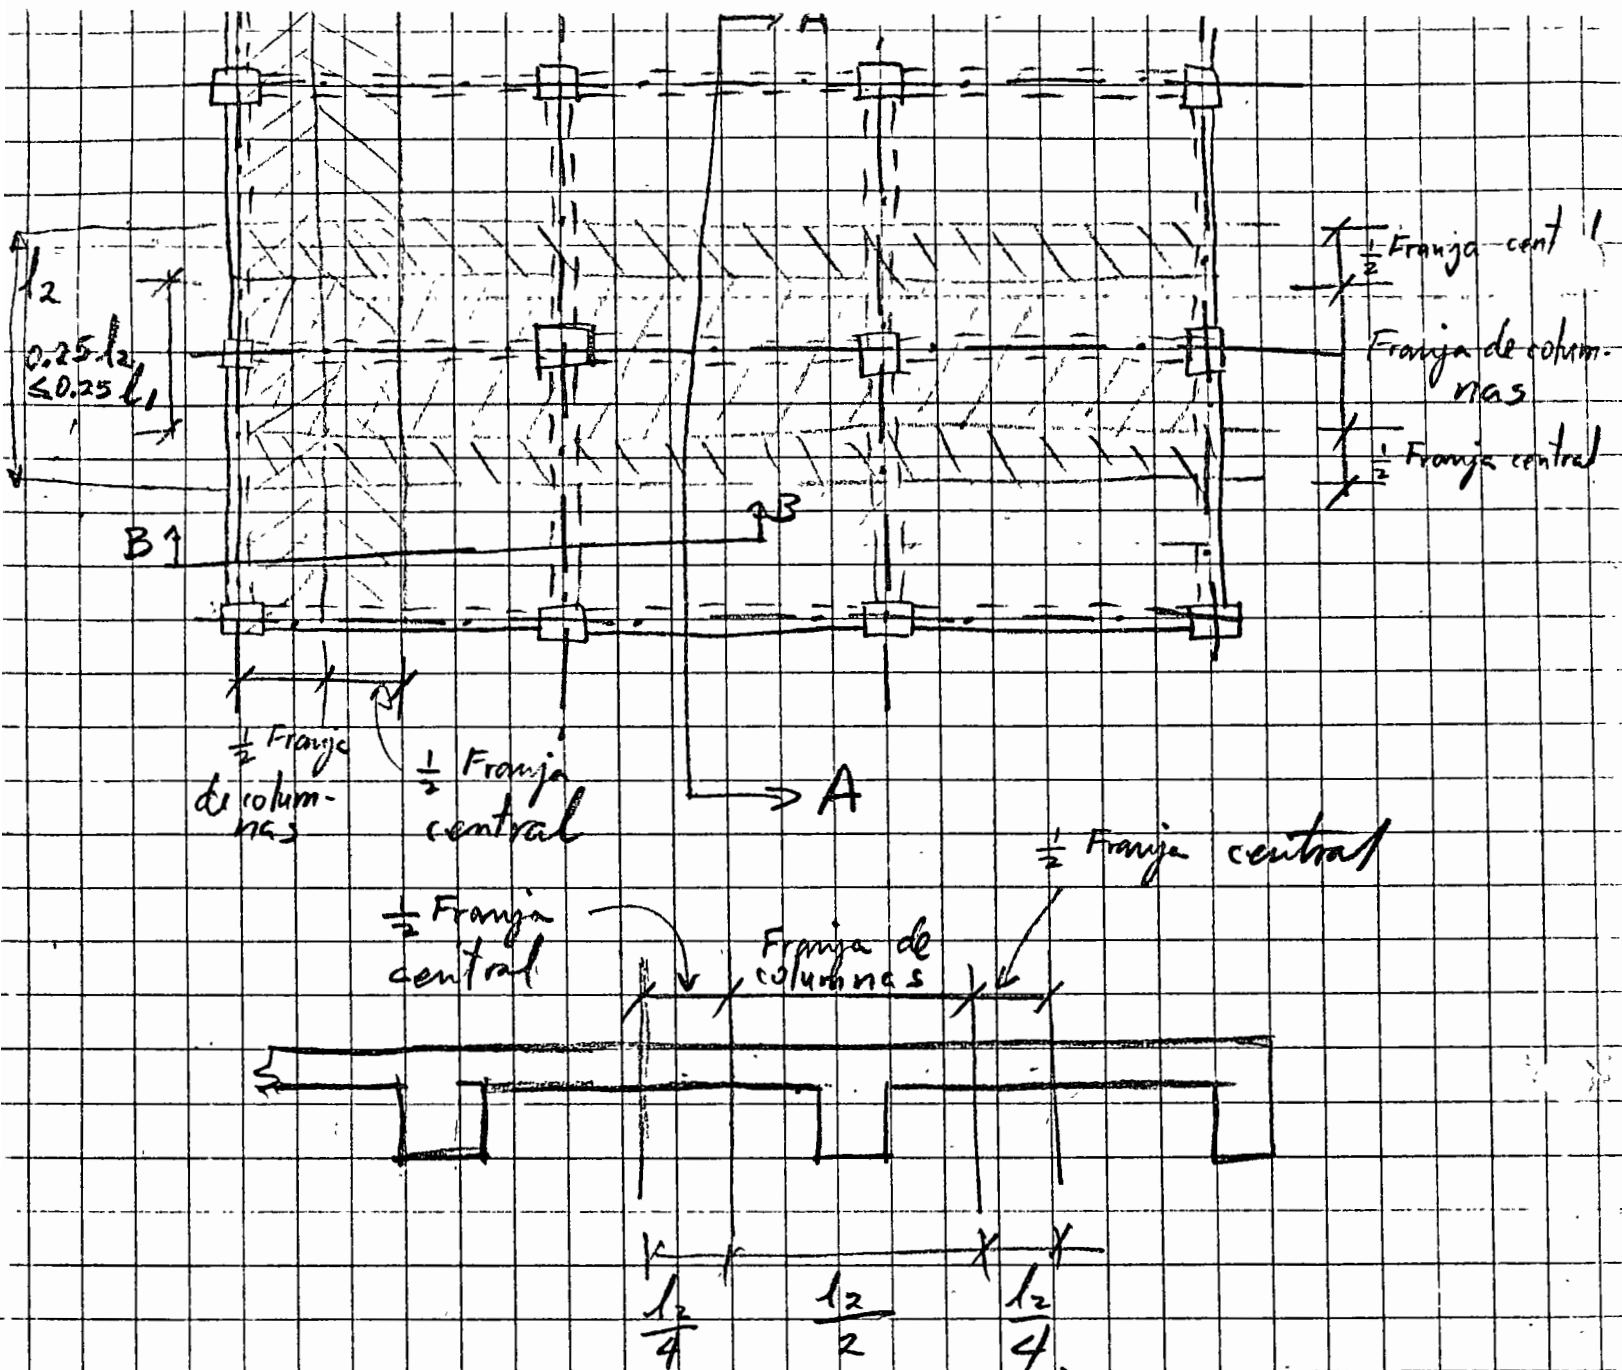 A
l₂
½ Franja cent l
0.25 l₂
≤0.25 l₁
Franja de colum-
nas
½ Franja central
B
B
½ Franja
de colum-
nas
½ Franja
central
A
½ Franja central
½ Franja
central
Franja de
columnas
l₂/4
l₂/2
l₂/4